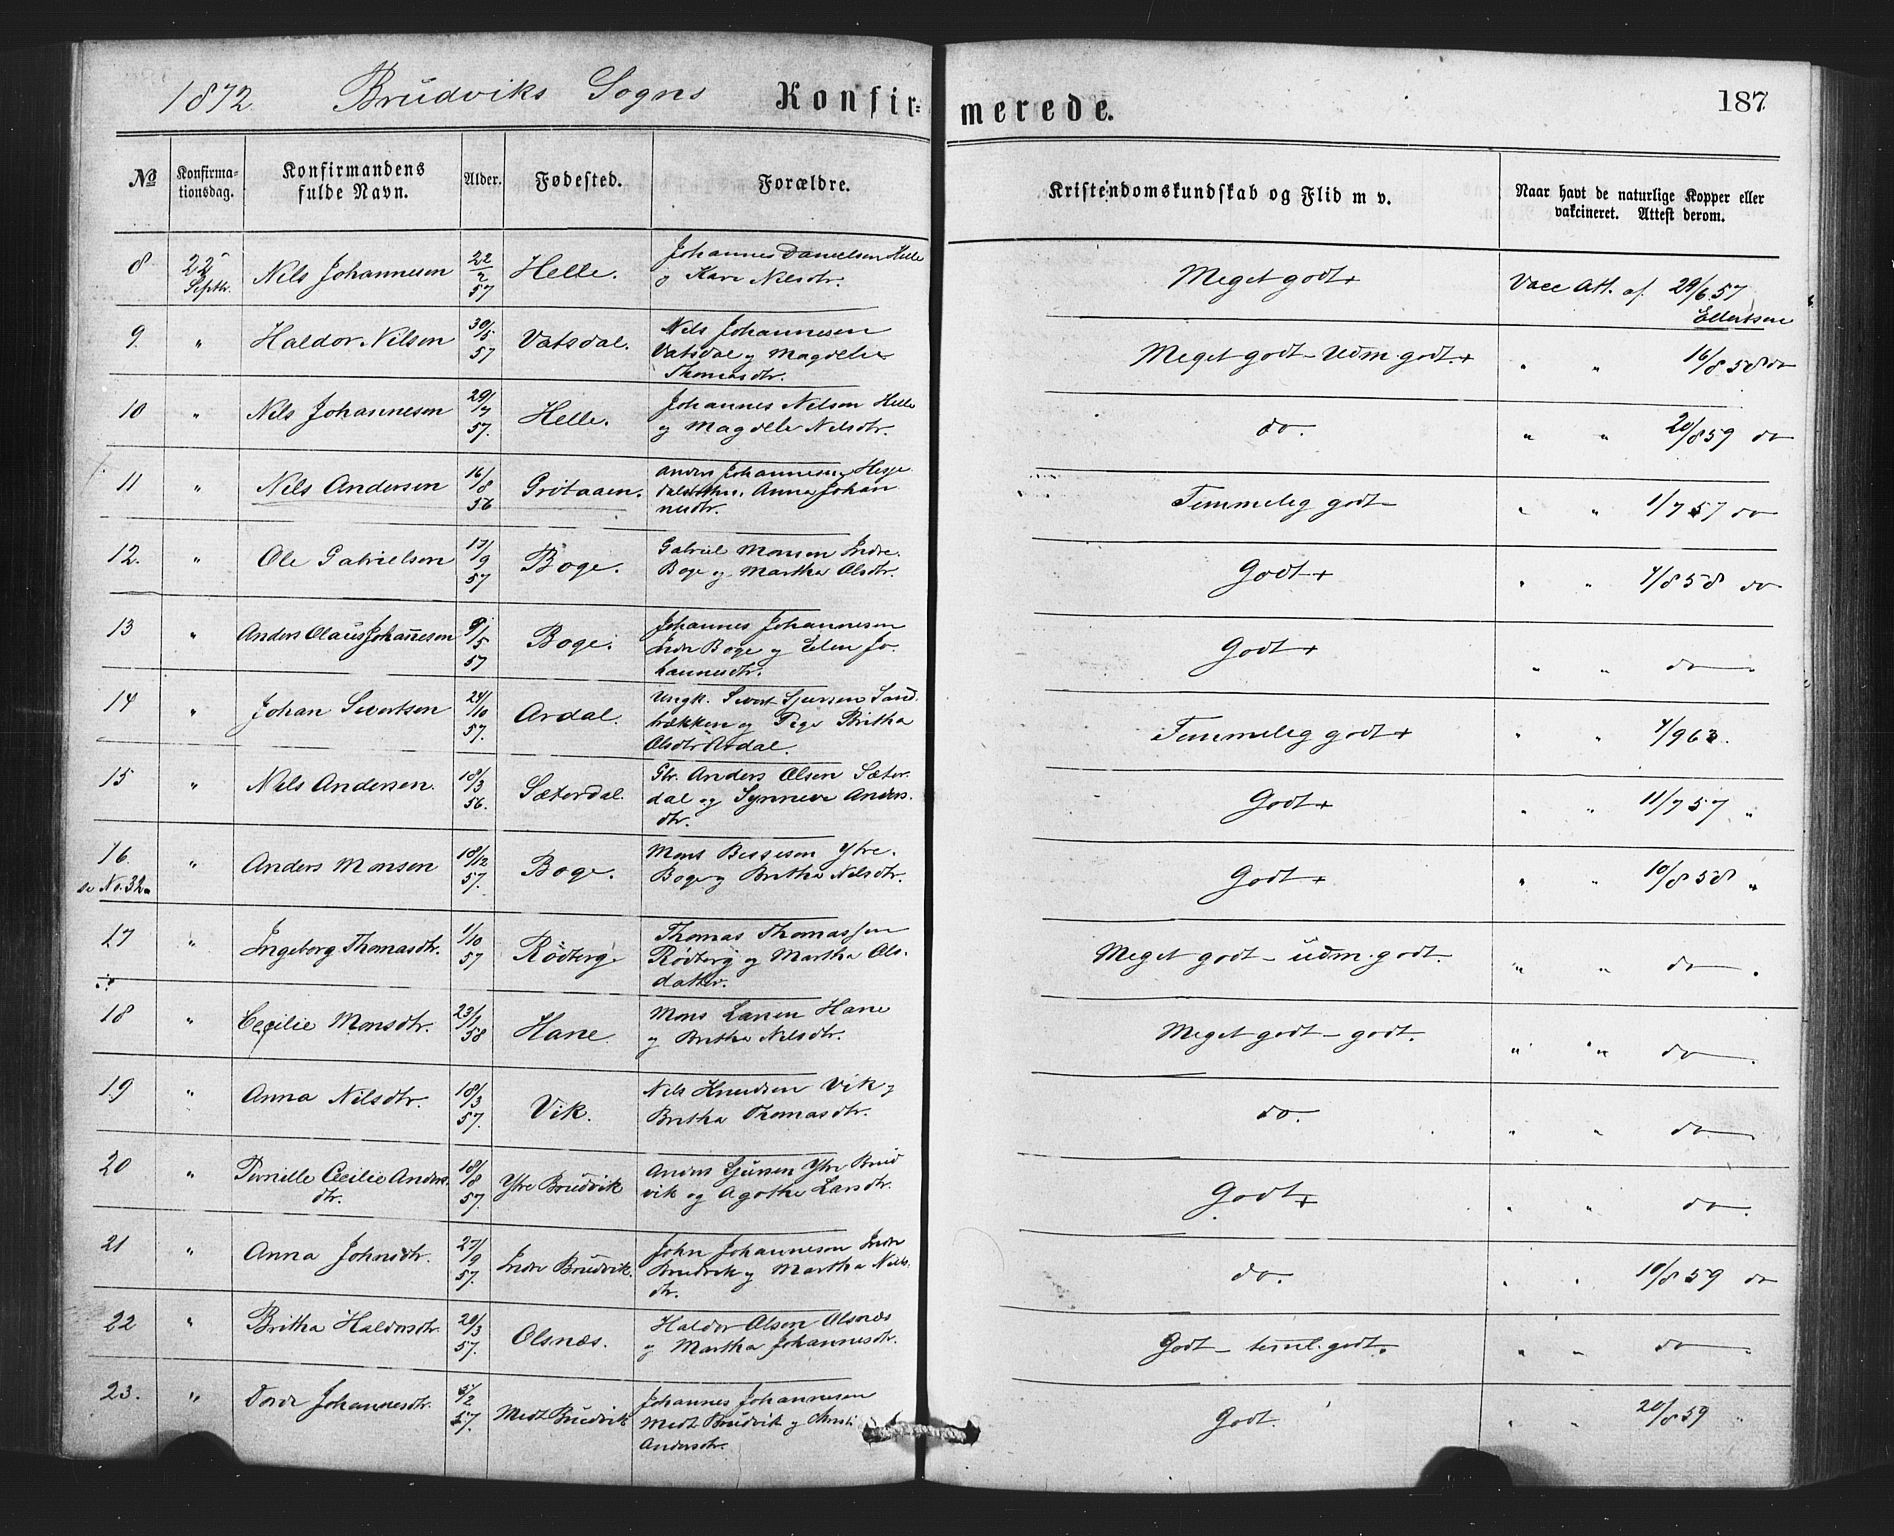 1872 Brudviks Sogns Konfir=merede. 187
No Konfirma-tionsdag. Konfirmandens fulde Navn. Alder. Fødested. Forældre. Kristendomskundskab og Flid m v. Naar havt de naturlige Kopper eller vakcineret. Attest derom.
8 22 Septbr. Nils Johannesen 22/2 57 Helle. Johannes Danielsen Helle
og Kari Nilsdtr. Meget godt+ Vacc Att. af 29/6 57
Ellertsen
9. " Haldor Nilsen 30/5 57 Vatsdal. Nils Johannesen
Vatsdal og Magdele
Thomasdtr. Meget godt – Udm. godt+ " " 16/8 58 do
10 " Nils Johannesen 29/7 57. Helle. Johannes Nilsen Helle
og Magdele Nilsdtr. do. " " 20/8 59 do
11 " Nils Andersen 16/8 56 Grötaaen. Anders Johannesen Hesje
Anna Johan
nesdtr. Temmelig godt – " " 1/7 57 do
12. " Ole Gabrielsen 17/9 57 Boge. Gabriel Monsen Indre
Boge og Martha Olsdtr. Godt+ " " 4/8 58 do
13 " Anders Olaus Johannesen 9/5 57 Boge. Johannes Johannesen
Indre Boge og Elen Jo
hannesdtr. Godt+ " " do
14 " Johan Sivertsen 24/10 57. Ardal. Ungk. Sivert Sjursen Sand
brækken og Pige Britha
Olsdtr Ardal. Temmelig godt+ " " 4/9 63.
15 " Nils Andersen. 18/3 56. Sæterdal. Gbr. Anders Olsen Sæter
dal og Synneve Anders
dtr. Godt+ " " 11/7 57 "
16. " Anders Monsen 18/12 57. Boge. Mons Bessesen Ytre
Boge og Britha Nilsdtr. Godt+ " " 10/8 58 "
se No. 32
17 " Ingeborg Thomasdtr. 1/10 57 Rödberg Thomas Thomassen
Rödberg og Martha Ols
datter. Meget godt – udm. godt. " " do.
18 " Cecilie Monsdtr. 23/1 58 Hane Mons Larsen Hane
og Britha Nilsdtr. Meget godt – godt. " " do.
19 " Anna Nilsdtr. 18/3 57. Vik. Nils Knudsen Vik og
Britha Thomasdtr. do. " " do
20 " Pernille Cecilie Anders
dtr. 18/8 57. Ytre Brudvik Anders Sjursen Ytre Brud
vik og Agothe Larsdtr. Godt+ " " do.
21 " Anna Johnsdtr. 27/9 57. Indre Brudvik. John Johannesen Indre
Brudvik og Martha Niels
dtr. do. " " 10/8 59 do
22 " Britha Haldorsdtr. 20/3 57. Olsnæs. Haldor Olsen Olsnæs
og Martha Johannesdtr. Godt – teml. godt. " " do
23. " Dorde Johannesdtr. 5/2 57. Medt Brudvik Johannes Johannesen
Medt Brudvik og Kristi
Andersdtr. Godt. " " 20/8 59 "